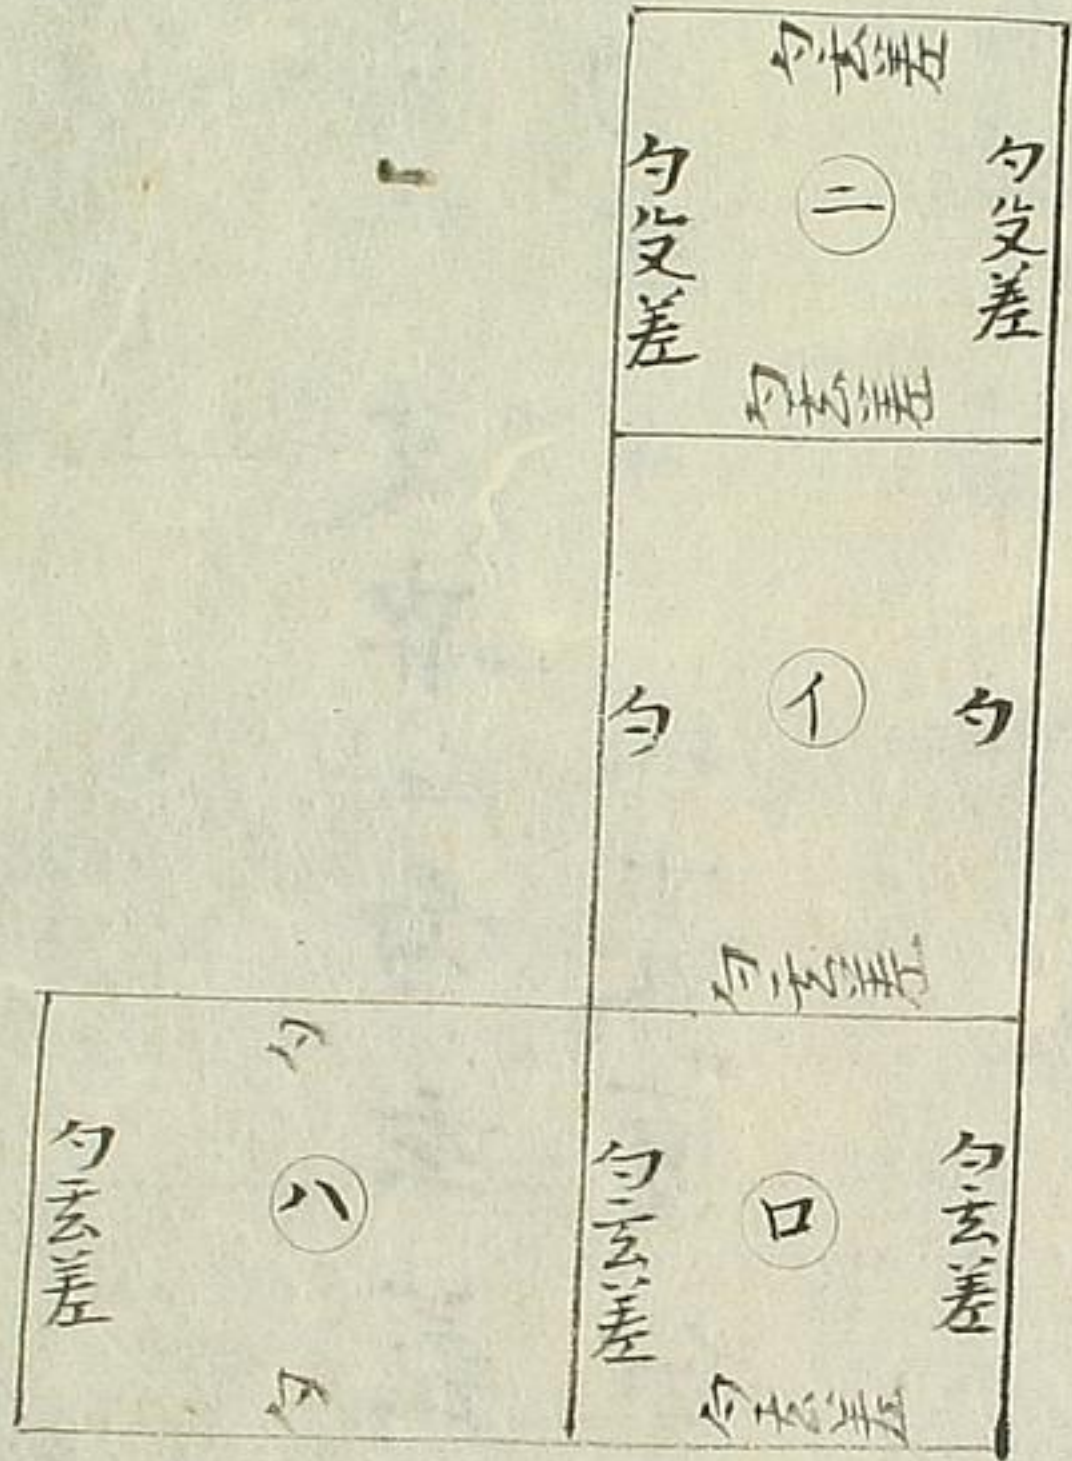 勾玄差
勾殳差
㊁
勾殳差
勾玄差
勾
イ
勾
勾玄差
勾玄差
ロ
勾玄差
勾玄差
勾
ハ
勾玄差
勾